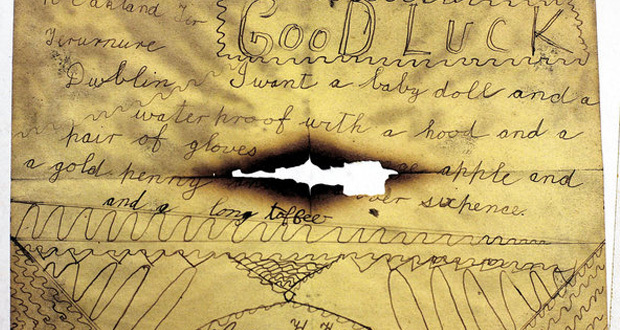 GOOD LUCK
Oakland Ter
Terurnure
Dublin I want a baby doll and a
waterproof with a hood and a
pair of gloves apple and
a gold penny sixpence.
and a long toffee